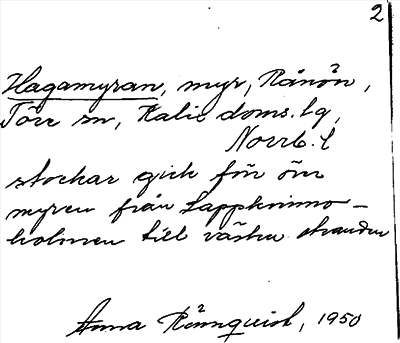 2
Hagamyran, myr, Rånön,
Töre sn, Kalix doms. lg,
Norrb. l
stockar gick för över
myren från Lappkvinno-
holmen till västra stranden
Anna Rönnquist, 1950